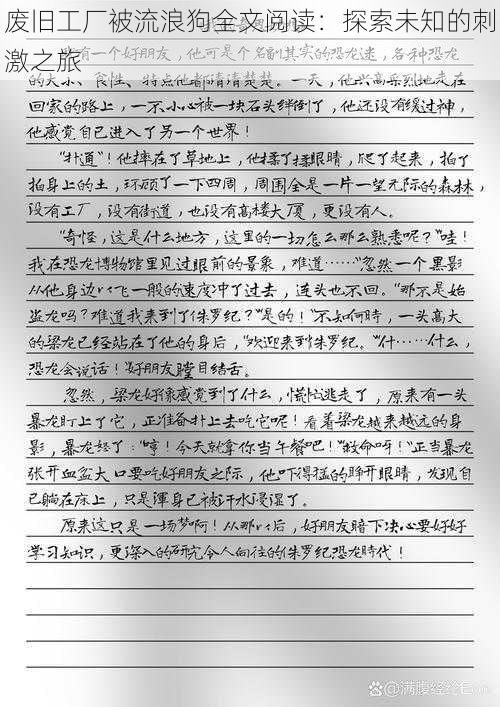 废旧工厂被流浪狗全文阅读：探索未知的刺
激之旅
有一个好朋友，他可是个名副其实的恐龙迷，各种恐龙
的大小、食性、特点他都清清楚楚。一天，他兴高采烈地走在
回家的路上，一不小心被一块石头绊倒了，他还没有缓过神，
他感觉自己进入了另一个世界！
“扑通”！他摔在了草地上，他揉了揉眼睛，爬了起来，拍了
拍身上的土，环顾了一下四周，周围全是一片一望无际的森林，
没有工厂，没有街道，也没有高楼大厦，更没有人。
“奇怪，这是什么地方，这里的一切怎么那么熟悉呢？”哇！
我在恐龙博物馆里见过眼前的景象，难道……”忽然一个黑影
从他身边以飞一般的速度冲了过去，连头也不回。“那不是始
盗龙吗？难道我来到了侏罗纪？”“是的！”不知何時，一头高大
的梁龙已经站在了他的身后，“欢迎来到侏罗纪。”“什……什么，
恐龙会说话！”好朋友瞠目结舌。
忽然，梁龙好像感觉到了什么，慌忙逃走了，原来有一头
暴龙盯上了它，正准备扑上去吃它呢！看着梁龙越来越远的身
影，暴龙怒了：“哼！今天就拿你当午餐吧！”“救命呀！”正当暴龙
张开血盆大口要吃好朋友之际，他吓得猛的睁开眼睛，发现自
己躺在床上，只是渾身已被汗水浸湿了。
原来这只是一场梦啊！从那以后，好朋友暗下决心要好好
学习知识，更深入的研究令人向往的侏罗纪恐龙時代！